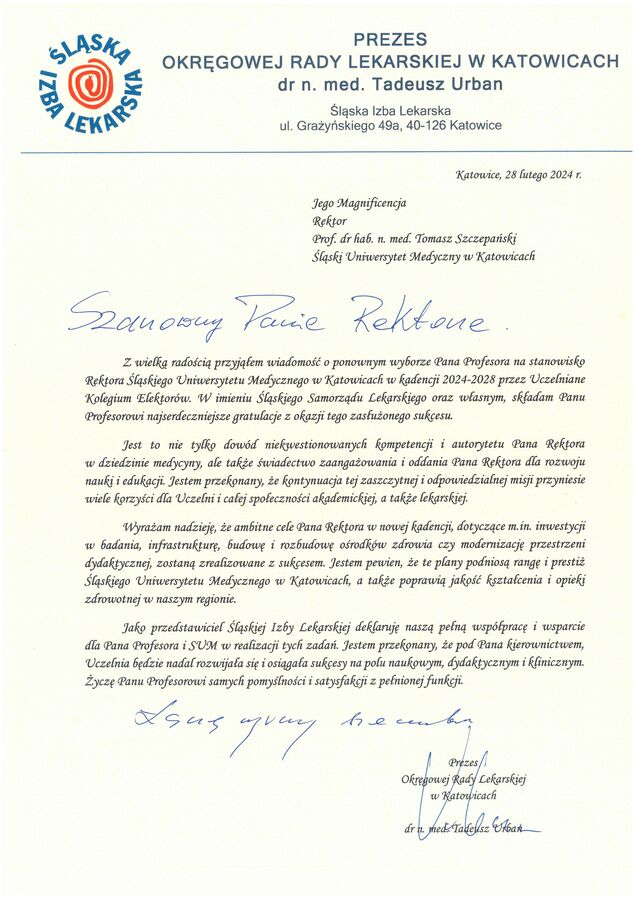 ŚLĄSKA
IZBA LEKARSKA
PREZES
OKRĘGOWEJ RADY LEKARSKIEJ W KATOWICACH
dr n. med. Tadeusz Urban
Śląska Izba Lekarska
ul. Grażyńskiego 49a, 40-126 Katowice
Katowice, 28 lutego 2024 r.
Jego Magnificencja
Rektor
Prof. dr hab. n. med. Tomasz Szczepański
Śląski Uniwersytet Medyczny w Katowicach
Szanowny Panie Rektorze.
Z wielką radością przyjąłem wiadomość o ponownym wyborze Pana Profesora na stanowisko
Rektora Śląskiego Uniwersytetu Medycznego w Katowicach w kadencji 2024-2028 przez Uczelniane
Kolegium Elektorów. W imieniu Śląskiego Samorządu Lekarskiego oraz własnym, składam Panu
Profesorowi najserdeczniejsze gratulacje z okazji tego zasłużonego sukcesu.
Jest to nie tylko dowód niekwestionowanych kompetencji i autorytetu Pana Rektora
w dziedzinie medycyny, ale także świadectwo zaangażowania i oddania Pana Rektora dla rozwoju
nauki i edukacji. Jestem przekonany, że kontynuacja tej zaszczytnej i odpowiedzialnej misji przyniesie
wiele korzyści dla Uczelni i całej społeczności akademickiej, a także lekarskiej.
Wyrażam nadzieję, że ambitne cele Pana Rektora w nowej kadencji, dotyczące m.in. inwestycji
w badania, infrastrukturę, budowę i rozbudowę ośrodków zdrowia czy modernizację przestrzeni
dydaktycznej, zostaną zrealizowane z sukcesem. Jestem pewien, że te plany podniosą rangę i prestiż
Śląskiego Uniwersytetu Medycznego w Katowicach, a także poprawią jakość kształcenia i opieki
zdrowotnej w naszym regionie.
Jako przedstawiciel Śląskiej Izby Lekarskiej deklaruję naszą pełną współpracę i wsparcie
dla Pana Profesora i SUM w realizacji tych zadań. Jestem przekonany, że pod Pana kierownictwem,
Uczelnia będzie nadal rozwijała się i osiągała sukcesy na polu naukowym, dydaktycznym i klinicznym.
Życzę Panu Profesorowi samych pomyślności i satysfakcji z pełnionej funkcji.
Prezes
Okręgowej Rady Lekarskiej
w Katowicach
dr n. med. Tadeusz Urban